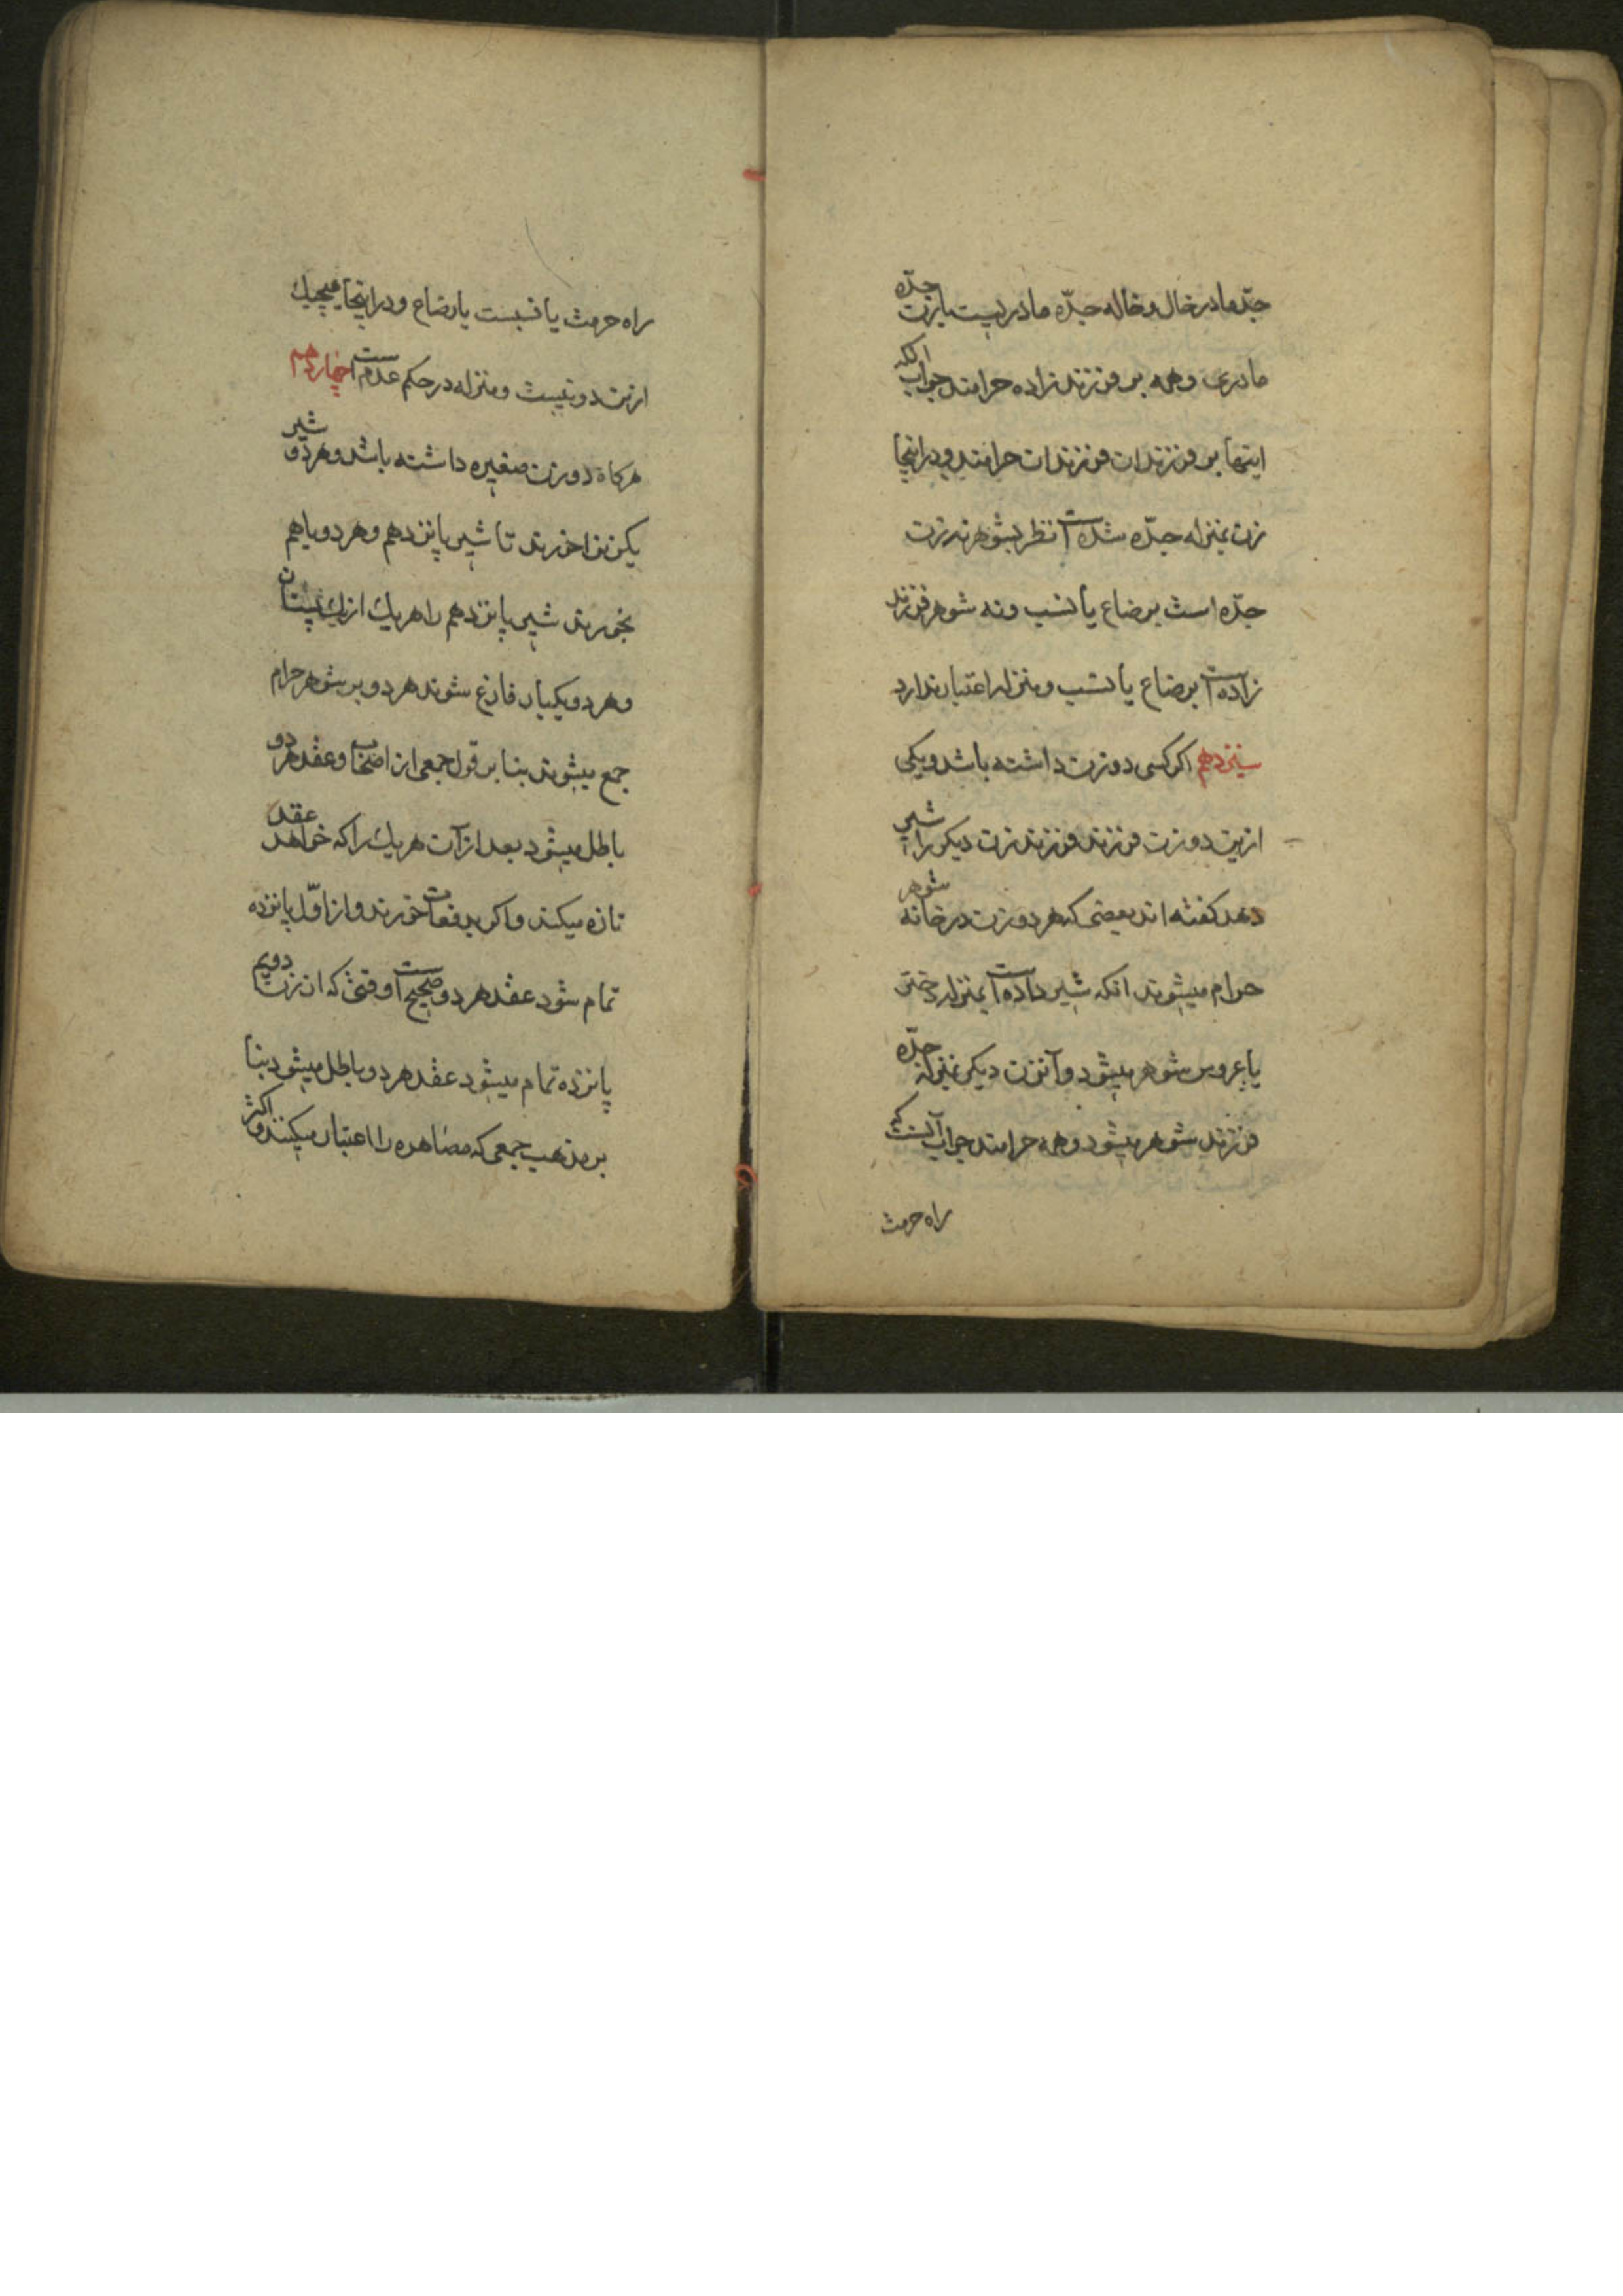 جدّ مادر خال و خاله جدّه مادریست یا زن جدّه
مادری و همه بر فرزند زاده حرامند جواب آنکه
اینها بر فرزندان فرزندان حرامند و در اینجا
زن بمنزله جدّه شده است نظر بشوهر نه زن
جدّه است برضاع یا نسب و نه شوهر فرزند
زاده است برضاع یا نسب و منزله اعتبار ندارد
سیزدهم اگر کسی دو زن داشته باشد و یکی
ازین دو زن فرزند فرزند زن دیگر را شیر
دهد گفته اند بعضی که هر دو زن در خانه شوهر
حرام میشوند آنکه شیر داده است بمنزله دختر
یا عروس شوهر میشود و آن زن دیگر بمنزله جدّه
فرزند شوهر میشود و همه حرامند جواب آنست که
راه حرمت
راه حرمت یا نسبست یا رضاع و در اینجا هیچیک
ازین دو نیست و منزله در حکم عدم است چهاردهم
هرگاه دو زن صغیره داشته باشد و هر دو شیر
یک زن را خورند تا شیر پانزدهم و هر دو با هم
بخورند شیر پانزدهم را هر یک از یک پستان
و هر دو یکبار فارغ شوند هر دو بر شوهر حرام
جمع میشوند بنا بر قول جمعی از اصحاب و عقد هر دو
باطل میشود بعد از آن هر یک را که خواهد عقد
تازه میکند و اگر بدفعات خورند و از اوّل پانزده
تمام شود عقد هر دو صحیح است و قتی که ان زن دویم
پانزده تمام میشود عقد هر دو باطل میشود بنا
بر مذهب جمعی که مصاهره را اعتبار میکنند و اکثر